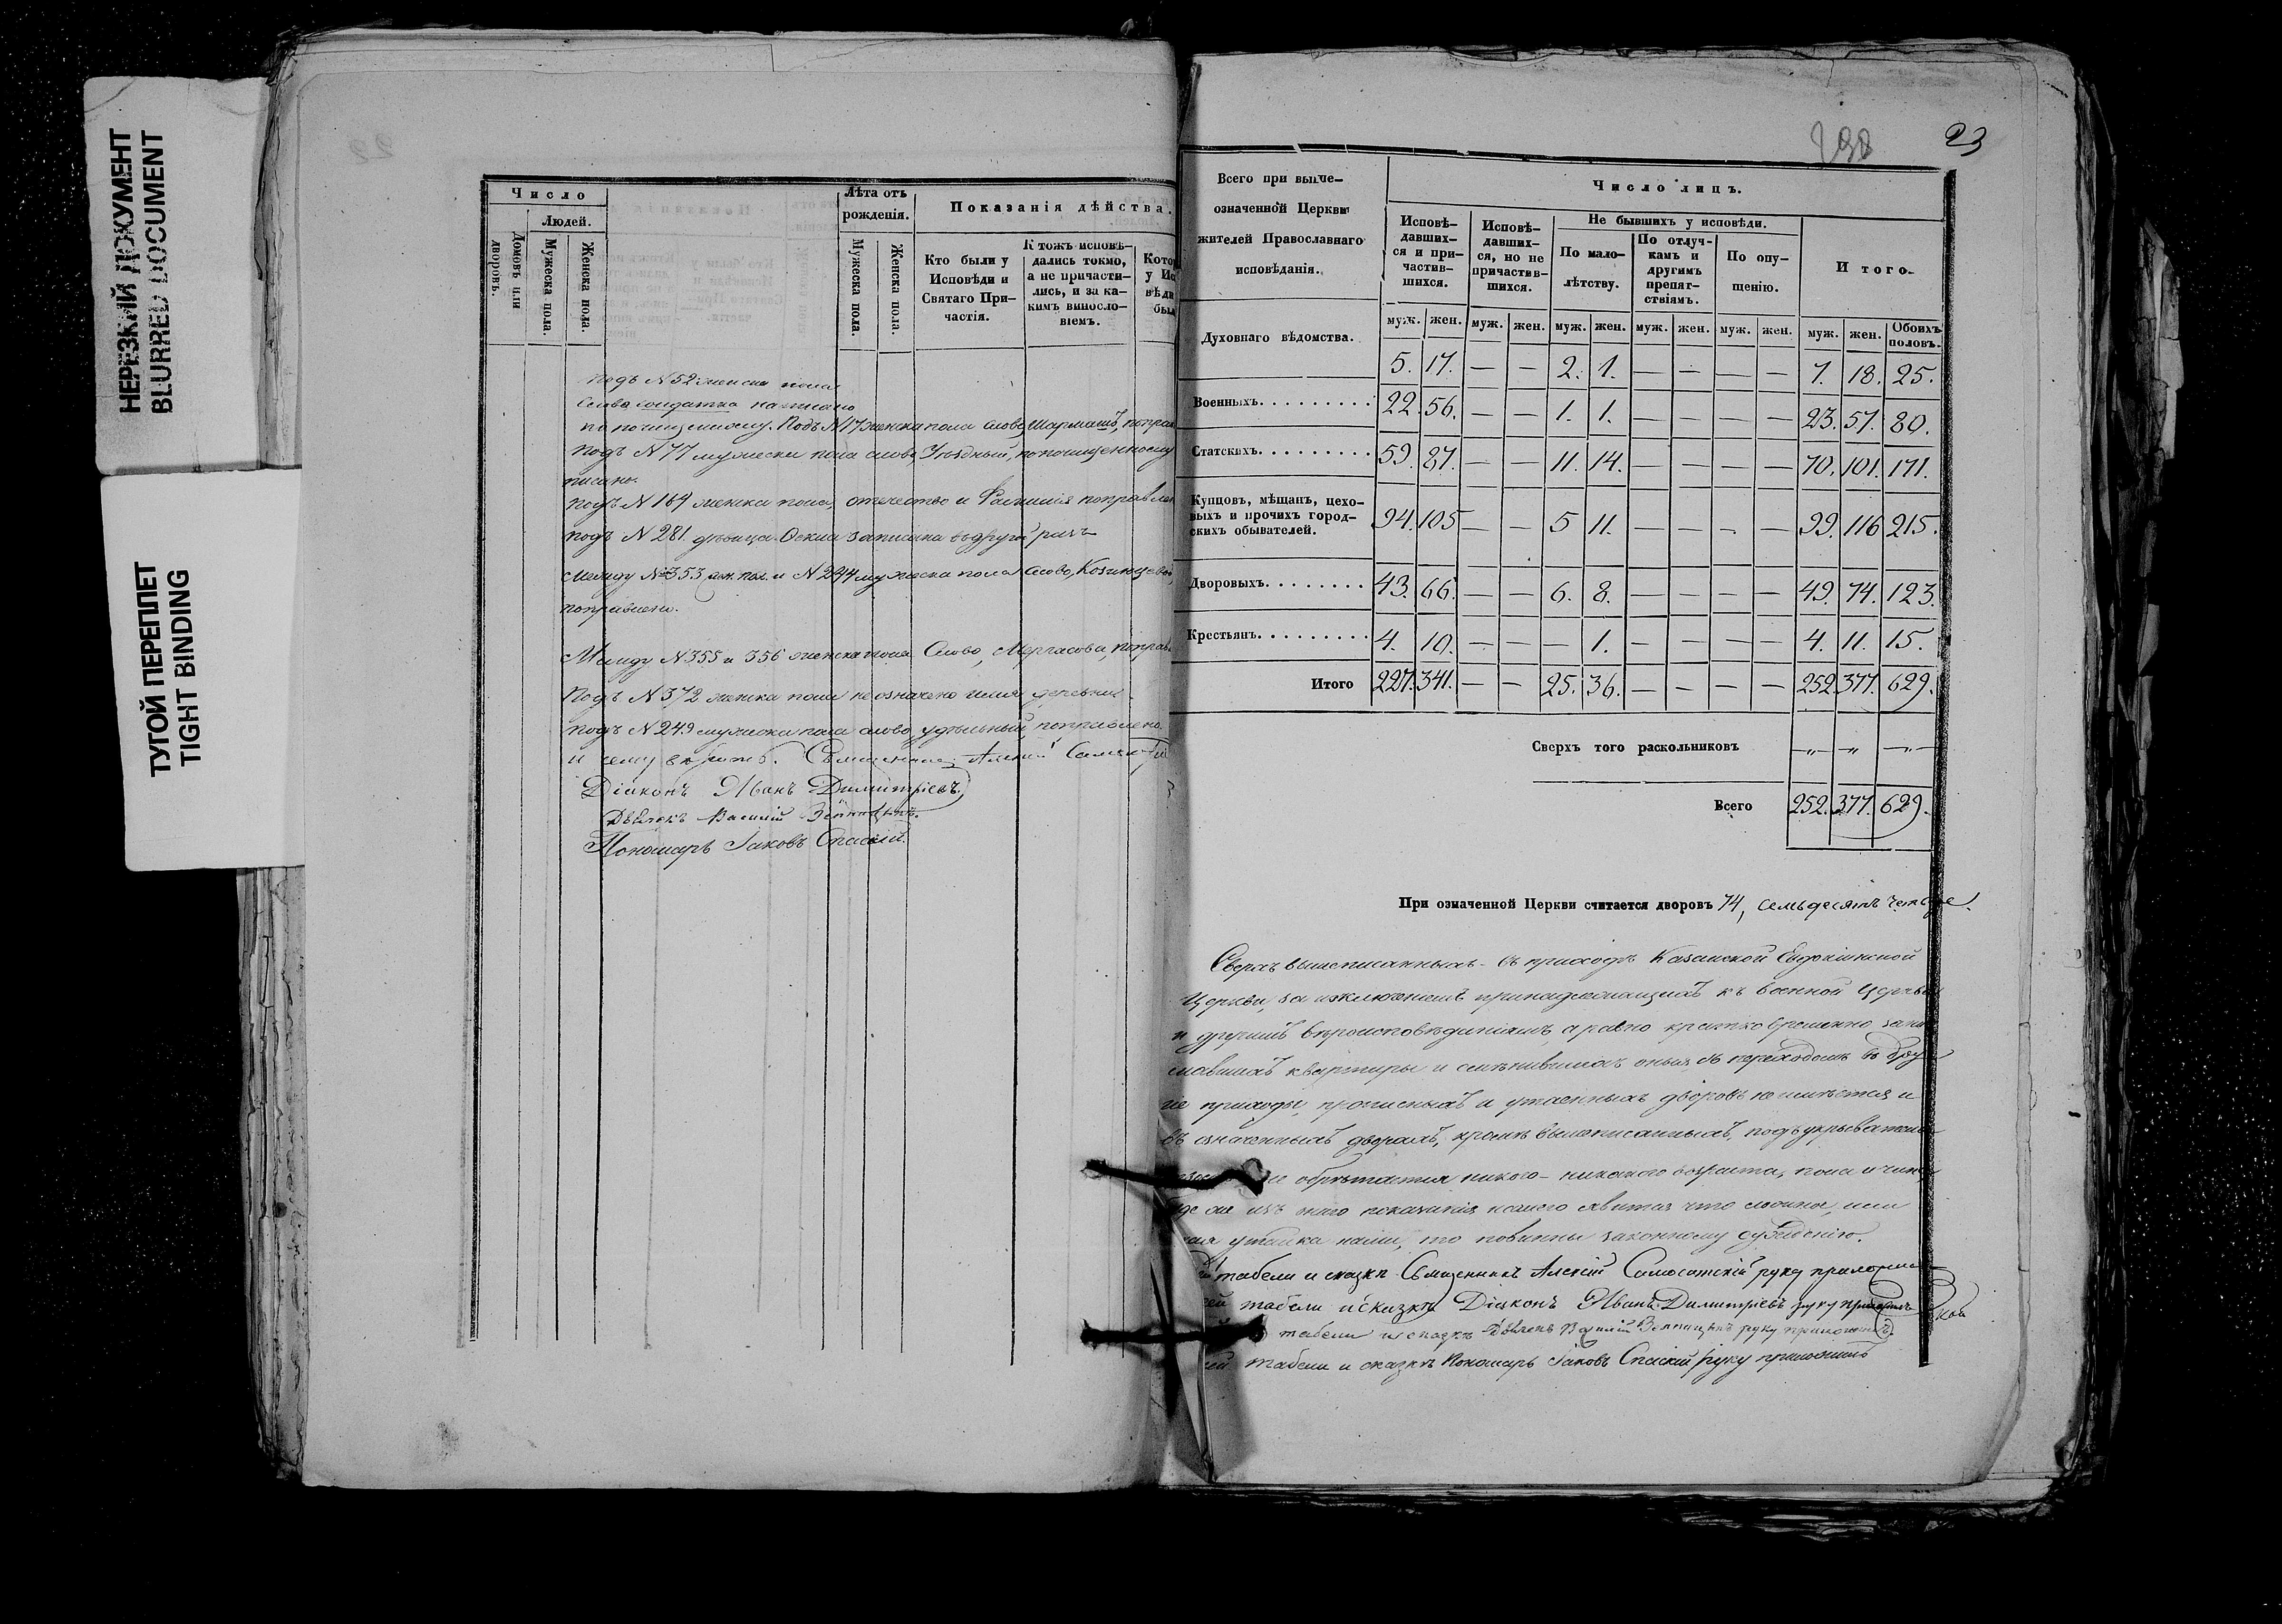 НЕРЕЗКИЙ ДОКУМЕНТ
BLURRED DOCUMENT
ТУГОЙ ПЕРЕПЛЕТ
TIGHT BINDING
Число
Людей.
Домовъ или дворовъ.
Мужеска пола.
Женска пола.
Лѣта отъ рожденія.
Мужеска пола.
Женска пола.
Показанія дѣйства.
Кто были у Исповѣди и Святаго Причастія.
Ктожъ исповѣдались токмо, а не причастились, и за какимъ винословіемъ.
подъ N 52 женска пола
слово солдатка написано
по почищенному. Подъ N 17 женска пола слово
подъ N 77 мужеска пола слово, Уѣздный, попочищенному
писано.
подъ N 164 женска пола, отечество и Фамилія
подъ N 281 дѣвица записана вдругой разъ
Между N 353 жен. пол. и N 244 мужеска пола слово,
поправлено.
Между N 355 и 356 женска пола Слово, Мергасова,
Подъ N 372 женска пола не означено имя деревни.
подъ N 249 мужеска пола слово, удѣльный, поправлено.
и сему вѣрить. Священникъ Алексій
Діаконъ Иванъ Димитріевъ.
Дьячекъ Василій
Пономарь Іаковъ Спаскій.
23
Всего при вышеозначенной Церкви жителей Православнаго исповѣданія.
Число лицъ.
Исповѣдавшихся и причастившихся.
Исповѣдавшихся, но не причастившихся.
Не бывшихъ у исповѣди.
По малолѣтству.
По отлучкамъ и другимъ препятствіямъ.
По опущенію.
Итого.
муж. жен. муж. жен. муж. жен. муж. жен. муж. жен. муж. жен. Обоихъ половъ.
Духовнаго вѣдомства. 5. 17. — — 2. 1. — — — — 7. 18. 25.
Военныхъ. 22. 56. — — 1. 1. — — — — 23. 57. 80.
Статскихъ. 59. 87. — — 11. 14. — — — — 70. 101. 171.
Купцовъ, мѣщанъ, цеховыхъ и прочихъ городскихъ обывателей. 94. 105 — — 5 11. — — — — 99. 116 215.
Дворовыхъ. 43. 66. — — 6. 8. — — — — 49. 74. 123.
Крестьянъ. 4. 10. — — — 1. — — — — 4. 11. 15.
Итого 227. 341. — — 25. 36. — — — — 252. 377. 629.
Сверхъ того раскольниковъ — — —
Всего 252. 377. 629.
При означенной Церкви считается дворовъ 74, семьдесятъ четыре.
Сверхъ вышеписанныхъ въ приходѣ Казанской Евдокіинской
Церкви, за изключеніемъ принадлежащихъ къ военной Церкви
и другимъ вѣроисповѣданіямъ, а равно кратковременно
квартиры и смѣнившихъ оныя съ переходомъ въ
приходы, прописныхъ и утаенныхъ дворовъ не имѣется и
въ означенныхъ дворахъ, кромѣ вышеписанныхъ,
обрѣтается никого никакого возраста, пола и чина
изъ онаго показанія нашего явится что ложное, или
утайка нами, то повинны законному сужденію.
табели и сказкѣ Священникъ Алексій Самосатскій руку приложилъ
табели и сказкѣ Діаконъ Иванъ Димитріевъ руку приложилъ
табели и сказкѣ Дьячекъ Василій руку приложилъ.
табели и сказкѣ Пономарь Іаковъ Спаскій руку приложилъ